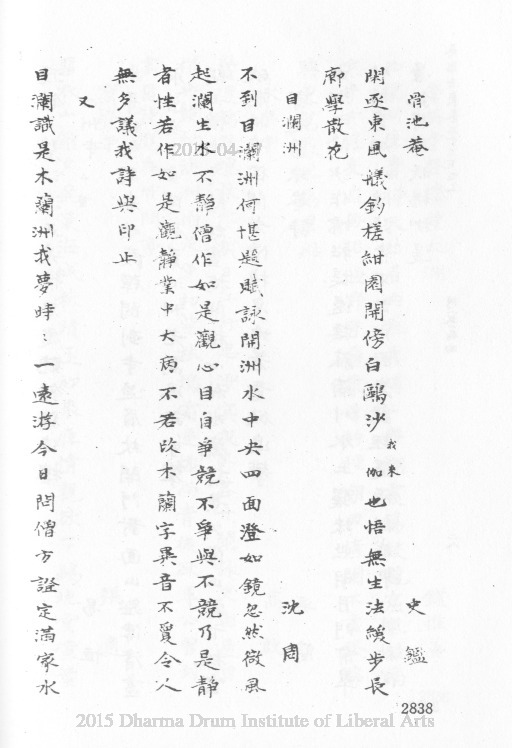 骨池菴
史鑑
閑逐東風艤釣槎紺園開傍白鷗沙我來伽也悟無生法緩步長
廊學散花
目瀾洲
沈周
不到目瀾洲何堪題賦詠開洲水中央四面澄如鏡忽然微風
起瀾生水不靜僧作如是觀心目自爭競不爭與不競乃是靜
者性若作如是觀靜業中大病不若改木蘭字異音不異令人
無多議我詩與印止
又
目瀾識是木蘭洲我夢時：一遠游今日問僧方證定滿家水
2838
2015 Dharma Drum Institute of Liberal Arts